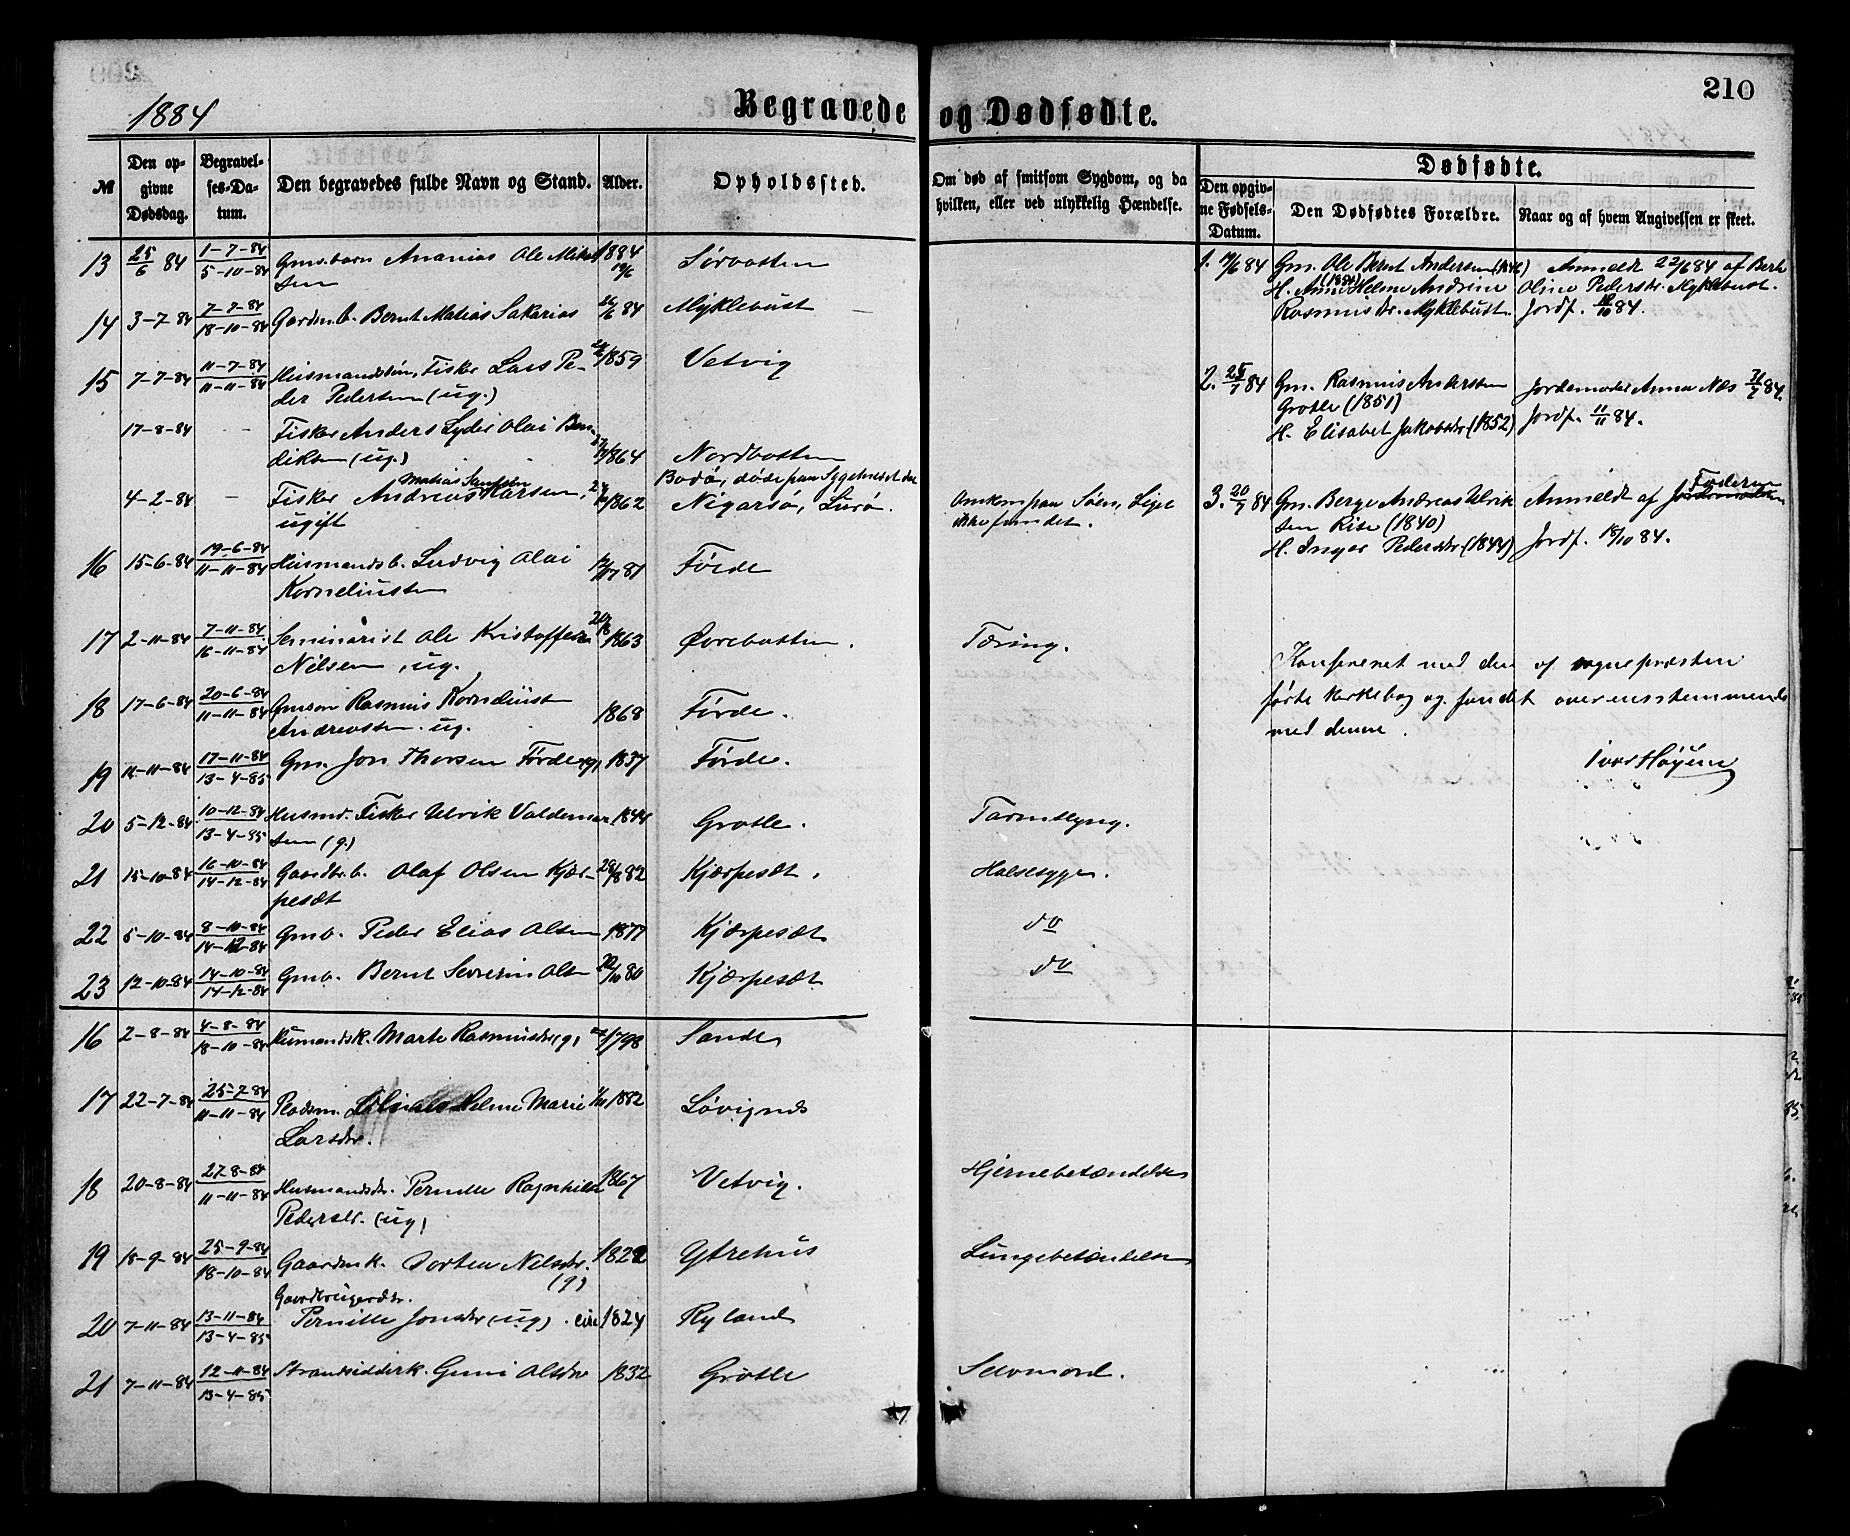 210
1884
Begravede og Dødfødte.
№
Den opgivne Dødsdag.
Begravelses-Datum.
Den begravedes fulde Navn og Stand.
Alder.
Opholdssted.
Om død af smitsom Sygdom, og da hvilken, eller ved ulykkelig Hændelse.
Dødfødte.
Den opgivne Fødsels-Datum.
Den Dødfødtes Forældre.
Naar og af hvem Angivelsen er skeet.
13 25/6 84 1-7-84 / 5-10-84 Gms. barn Ananias Ole Mikal 1884 Sørbotten
sen
14 3-7-84 7-7-84 / 18-10-84 Gardm.b. Bernt Matias Sakarias 84 Myklebust
15 7-7-84 11-7-84 / 11-11-84 Husmandssøn, Fisker Lars Pe- 1859 Vetvig
der Pedersen (ug.)
17-8-84 Fisker Anders Lyder Olai Ben-
diksen (ug.) 1864 Nordbotten
Bodø, døde paa Sygehuset der
Matias
4-2-84 Fisker Andreas Larsen, 1862 Nigarsø, Lurø. Omkom paa Søen, Liget
ugift ikke fundet.
16 15-6-84 19-6-84 / 11-11-84 Husmandsb. Ludvig Olai 81 Førde
Korneliussen
17 2-11-84 7-11-84 / 16-11-84 Seminarist Ole Kristoffer 1863 Øvrebotten. Tæring.
Nilsen, ug.
18 17-6-84 20-6-84 / 11-11-84 Gmsøn Rasmus
Andreassen. ug. 1868 Førde.
19 11-11-84 17-11-84 / 13-4-85 Gm. Jon Thorsen Førde (g) 1837 Førde.
20 5-12-84 10-12-84 / 13-4-85 Husmd. Fisker Ulrik Valdemar 1844 Grotle. Tarmslyng.
sen (g.)
21 15-10-84 16-10-84 / 14-12-84 Gaardbr.b. Olaf Olsen Kjær- 29/8 82 Kjærpesæt. Halssyge.
pesæt
22 5-10-84 8-10-84 / 14-12-84 Gmb. Peder Elias Olsen 1877 Kjærpesæt do
23 12-10-84 14-10-84 / 14-12-84 Gmb. Bernt Severin Olsen 80 Kjærpesæt do
16 2-8-84 4-8-84 / 18-10-84 Husmandsk. Marte Rasmusdtr (g) 1798 Sande
17 22-7-84 25-7-84 / 11-11-84 Pladsm. Helene Marie 1882 Løvignes
Larsdtr.
18 20-8-84 27-8-84 / 11-11-84 Husmandsdtr. Pernille Ragnhilde 1867 Vetvig. Hjernebetændelse
Pedersdtr. (ug)
19 18-9-84 25-9-84 / 18-10-84 Gaardmk. Dorten Nilsdtr. 1822 Ytrehus Lungebetændelse
(g)
Gaardbrugerdtr.
20 7-11-84 13-11-84 / 13-4-85 Pernille Jonsdtr (ug). circ 1824 Ryland
21 7-11-84 12-11-84 / 13-4-85 Strandsidderk. Guni Olsdtr 1832 Grotle Selvmord.
1. 19/6 84 Gm. Ole Bernt Andersen (1846) Anmeldt 22/6 84 af Berte
H. Anne Helene Andrine Oline Pedersdtr. Myklebust.
Rasmusdtr. Myklebust. Jordf. 18/10 84.
2. 25/7 84 Gm. Rasmus Andersen Jordemoder Anna Næs 31/7 84.
Grotle (1851) Jordf. 11/11 84.
H. Elisabet Jakobsdtr (1852)
3. 20/7 84 Gm. Berge Andreas Ulrik Anmeldt af Faderen
sen Rise (1840) Jordf. 18/10 84.
H. Inger Pedersdtr (1844)
Konfereret med den af sognepræsten
førte kirkebog og fundet overensstemmende
med denne.
Ivar Høyem